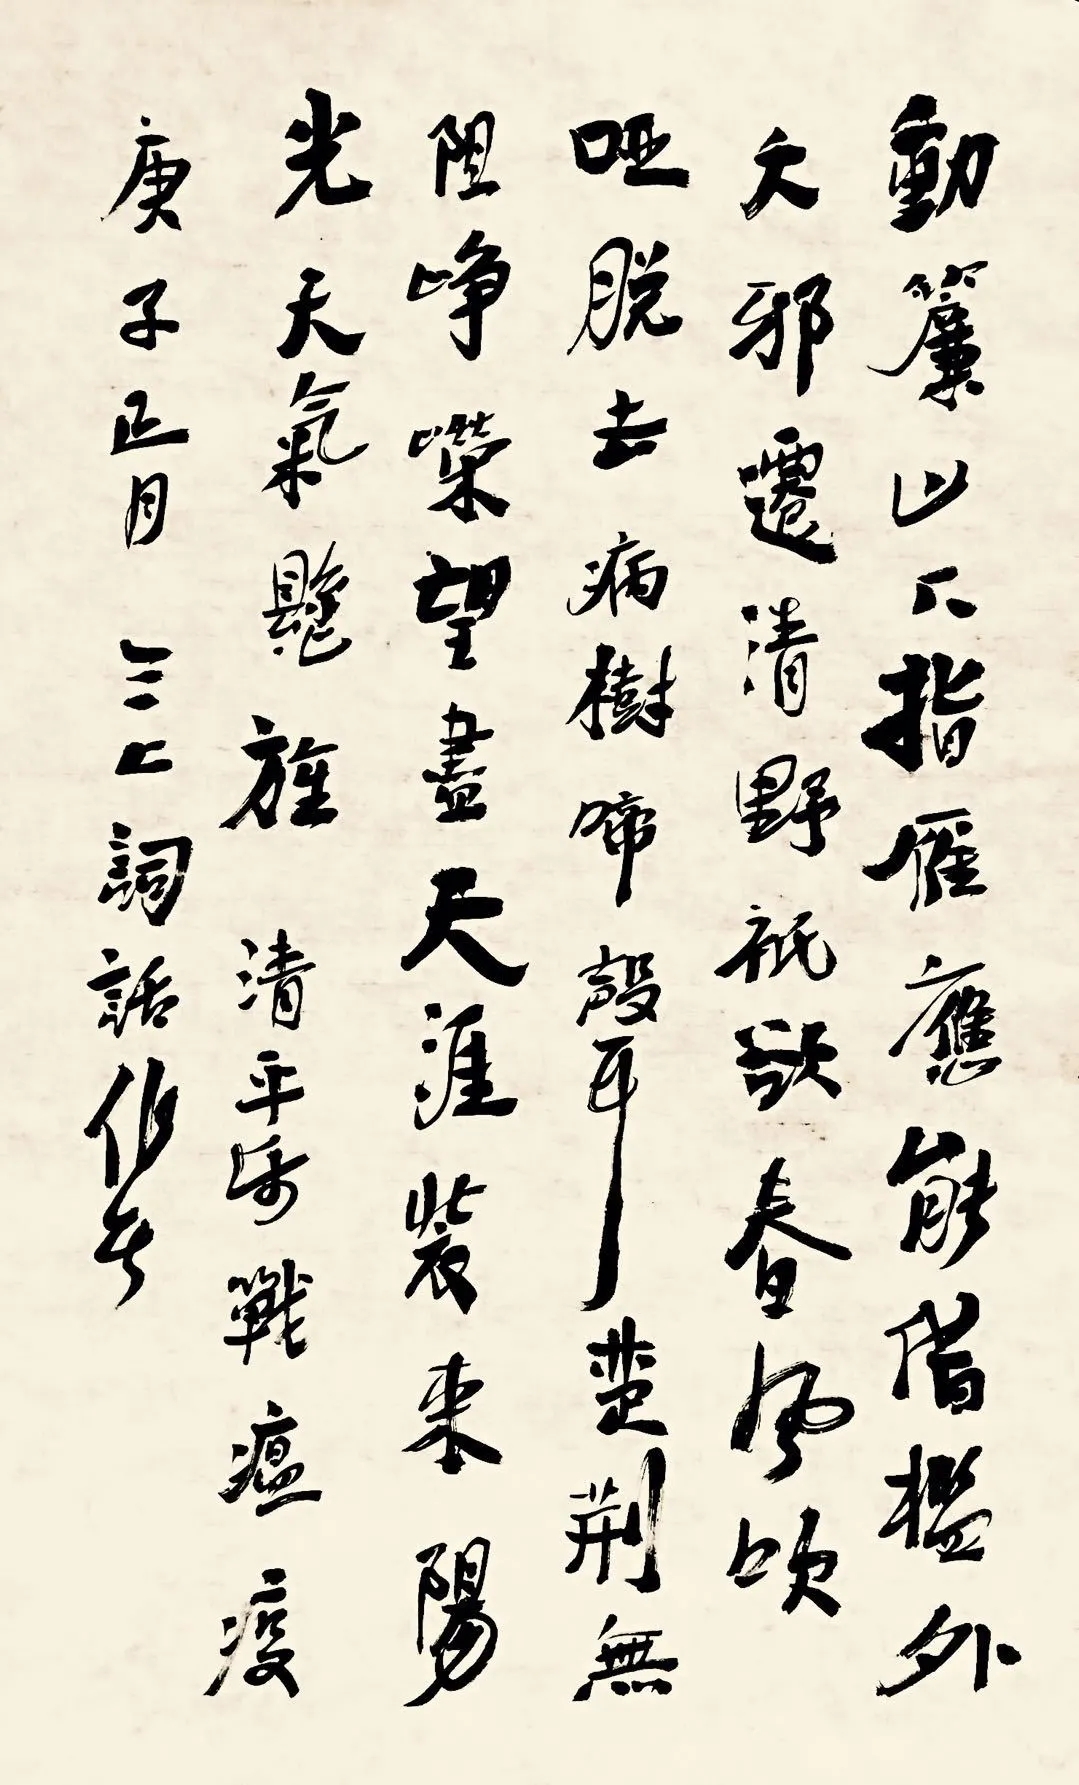 動簾山下指雁應能借檻外
大邪還清野祇欲春風吹
啞脱去病樹啼殼耳楚荆無
阻崢嶸望盡天涯裝來陽
光天氣懸旌 清平樂 戰瘟疫
庚子正月 三上詞話